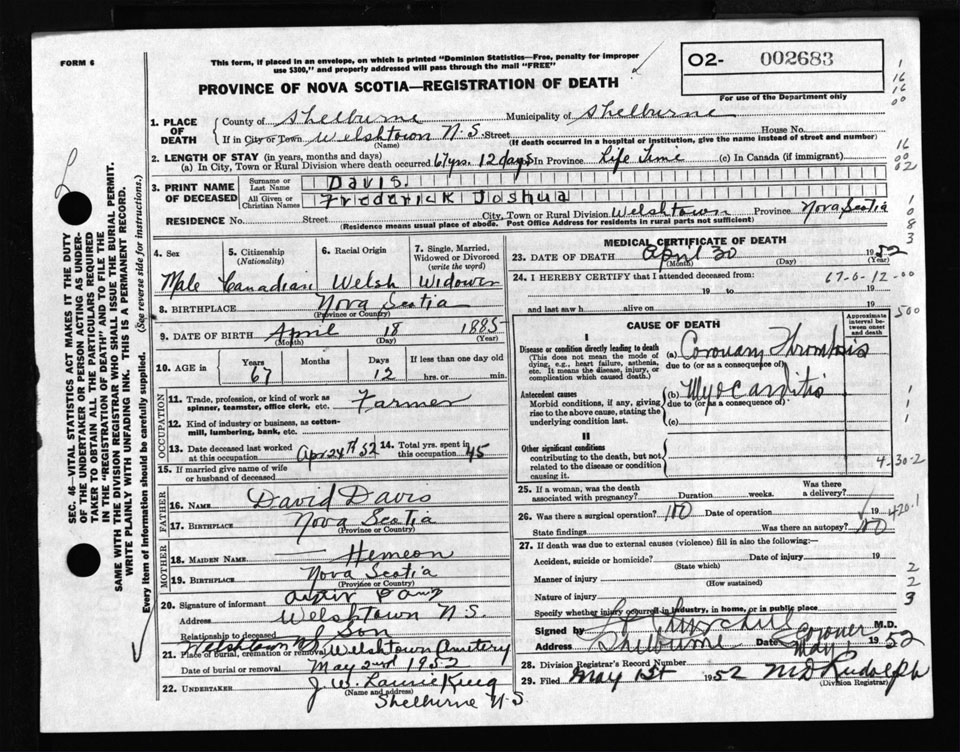 FORM 6
This form, if placed in an envelope, on which is printed "Dominion Statistics—Free, penalty for improper
use $300," and properly addressed will pass through the mail "FREE"
PROVINCE OF NOVA SCOTIA—REGISTRATION OF DEATH
02- 002683
For use of the Department only
1. PLACE OF DEATH
County of Shelburne Municipality of Shelburne
If in City or Town Welshtown N.S. Street House No.
(Name) (If death occurred in a hospital or institution, give the name instead of street and number)
2. LENGTH OF STAY (in years, months and days)
(a) In City, Town or Rural Division where death occurred 67 yrs. 12 days In Province Life Time (c) In Canada (if immigrant)
3. PRINT NAME OF DECEASED
Surname or Last Name Davis.
All Given or Christian Names Frederick Joshua
RESIDENCE No. Street City, Town or Rural Division Welshtown Province Nova Scotia
(Residence means usual place of abode. Post Office Address for residents in rural parts not sufficient)
4. Sex
Male
5. Citizenship
(Nationality)
Canadian
6. Racial Origin
Welsh
7. Single, Married, Widowed or Divorced
(write the word)
Widower
8. BIRTHPLACE Nova Scotia
(Province or Country)
9. DATE OF BIRTH April 18 1885
(Month) (Day) (Year)
10. AGE in
Years 67
Months
Days 12
If less than one day old
hrs. or min.
OCCUPATION
11. Trade, profession, or kind of work as
spinner, teamster, office clerk, etc. Farmer
12. Kind of industry or business, as cotton-
mill, lumbering, bank, etc.
13. Date deceased last worked
at this occupation Apr 24th 52
14. Total yrs. spent in
this occupation 45
15. If married give name of wife
or husband of deceased
FATHER
16. NAME David Davis
17. BIRTHPLACE Nova Scotia
(Province or Country)
MOTHER
18. MAIDEN NAME — Hemeon
19. BIRTHPLACE Nova Scotia
(Province or Country)
20. Signature of informant
Address Welshtown N.S.
Relationship to deceased Son
21. Place of burial, cremation or removal Welshtown NS Welshtown Cemetery
Date of burial or removal May 2nd 1952
22. UNDERTAKER J. W.
(Name and address)
Shelburne N.S
MEDICAL CERTIFICATE OF DEATH
23. DATE OF DEATH April 30 1952
(Month) (Day) (Year)
24. I HEREBY CERTIFY that I attended deceased from: 67-0-12-00
19 to 19
and last saw h alive on 19
CAUSE OF DEATH
Approximate interval between onset and death
I
Disease or condition directly leading to death
(This does not mean the mode of
dying, e.g., heart failure, asthenia,
etc. It means the disease, injury, or
complication which caused death.)
(a) Coronary Thrombosis
due to (or as a consequence of)
Antecedent causes
Morbid conditions, if any, giving
rise to the above cause, stating the
underlying condition last.
(b) Myocarditis
due to (or as a consequence of)
(c)
II
Other significant conditions
contributing to the death, but not
related to the disease or condition
causing it.
4-30-2
25. If a woman, was the death
associated with pregnancy? Duration weeks. Was there a delivery?
26. Was there a surgical operation? No Date of operation 19 420.1
State findings Was there an autopsy? No
27. If death was due to external causes (violence) fill in also the following:
Accident, suicide or homicide? Date of injury 19
(State which)
Manner of injury
(How sustained)
Nature of injury
Specify whether injury occurred in industry, in home, or in public place
Signed by M.D.
Coroner
Address Shelburne Date May 1 1952
28. Division Registrar's Record Number
29. Filed May 1st 1952 M D Rudolph
(Division Registrar)
SEC. 46—VITAL STATISTICS ACT MAKES IT THE DUTY
OF THE UNDERTAKER OR PERSON ACTING AS UNDER-
TAKER TO OBTAIN ALL THE PARTICULARS REQUIRED
IN THE "REGISTRATION OF DEATH" AND TO FILE THE
SAME WITH THE DIVISION REGISTRAR WHO SHALL ISSUE THE BURIAL PERMIT.
WRITE PLAINLY WITH UNFADING INK. THIS IS A PERMANENT RECORD.
Every item of information should be carefully supplied. (See reverse side for instructions.)